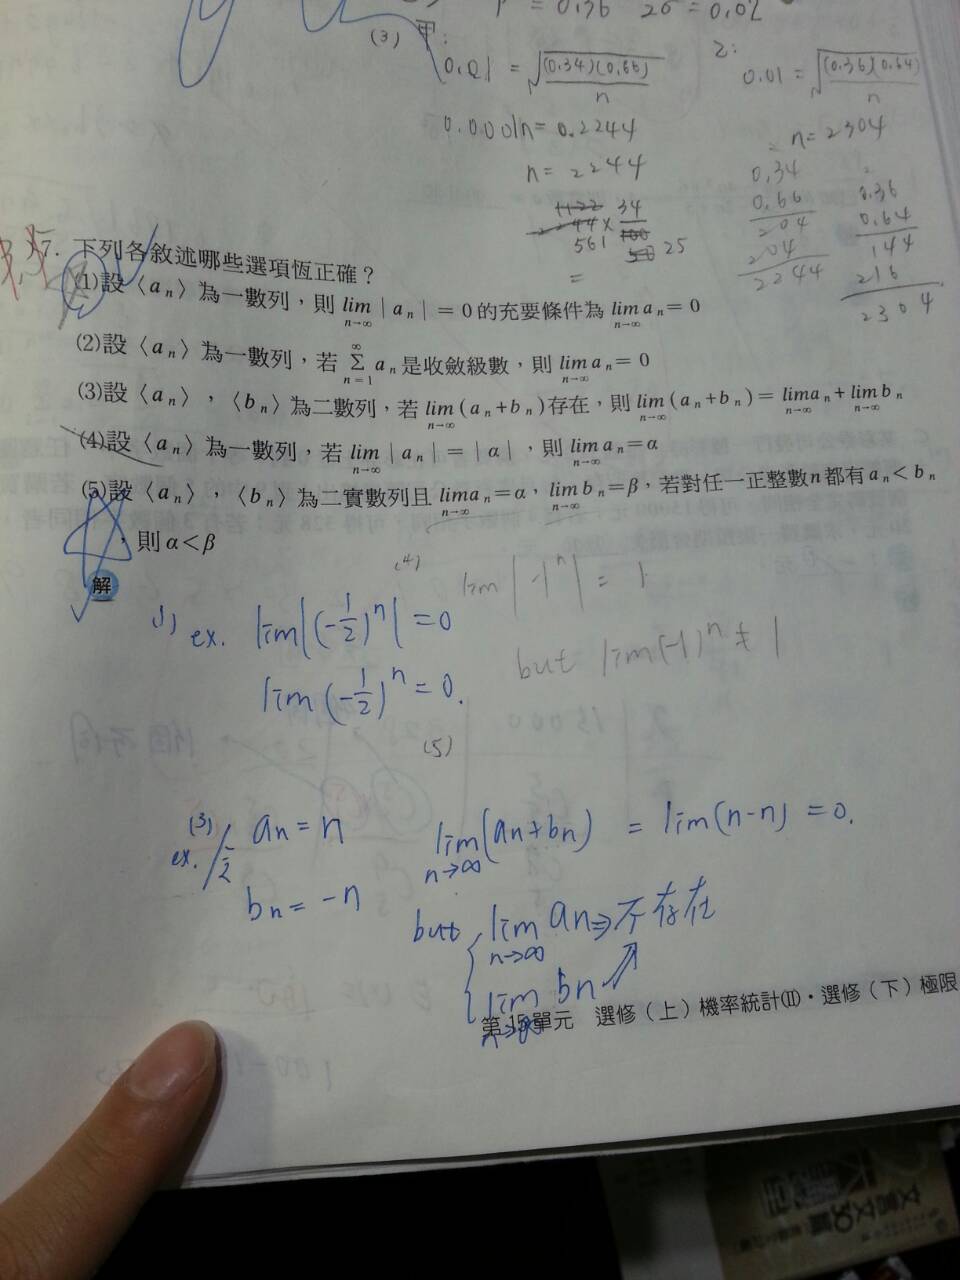 = 0.36 2σ = 0.02
(3) 甲: 0.01 = √((0.34)(0.66)/n)
0.0001n = 0.2244
n = 2244
乙: 0.01 = √((0.36)(0.64)/n)
n = 2304
34
561
25
=
0.34
0.66
204
204
2244
0.36
0.64
144
216
2304
7. 下列各敘述哪些選項恆正確？
(1)設〈a n〉為一數列，則 lim n→∞ | a n | = 0 的充要條件為 lim n→∞ a n = 0
(2)設〈a n〉為一數列，若 ∞ Σ n=1 a n 是收斂級數，則 lim n→∞ a n = 0
(3)設〈a n〉，〈b n〉為二數列，若 lim n→∞ (a n + b n) 存在，則 lim n→∞ (a n + b n) = lim n→∞ a n + lim n→∞ b n
(4)設〈a n〉為一數列，若 lim n→∞ | a n | = | α |，則 lim n→∞ a n = α
(5)設〈a n〉，〈b n〉為二實數列且 lim n→∞ a n = α，lim n→∞ b n = β，若對任一正整數 n 都有 a n < b n
，則 α < β
解
(1) ex. lim|(-1/2)^n| = 0
lim (-1/2)^n = 0.
(4) lim |-1^n| = 1
but lim(-1)^n ≠ 1
(5)
(3) ex. an = n
bn = -n
lim n→∞ (an+bn) = lim(n-n) = 0.
but lim n→∞ an ⇒ 不存在
lim n→∞ bn
第 15 單元 選修（上）機率統計(II)・選修（下）極限